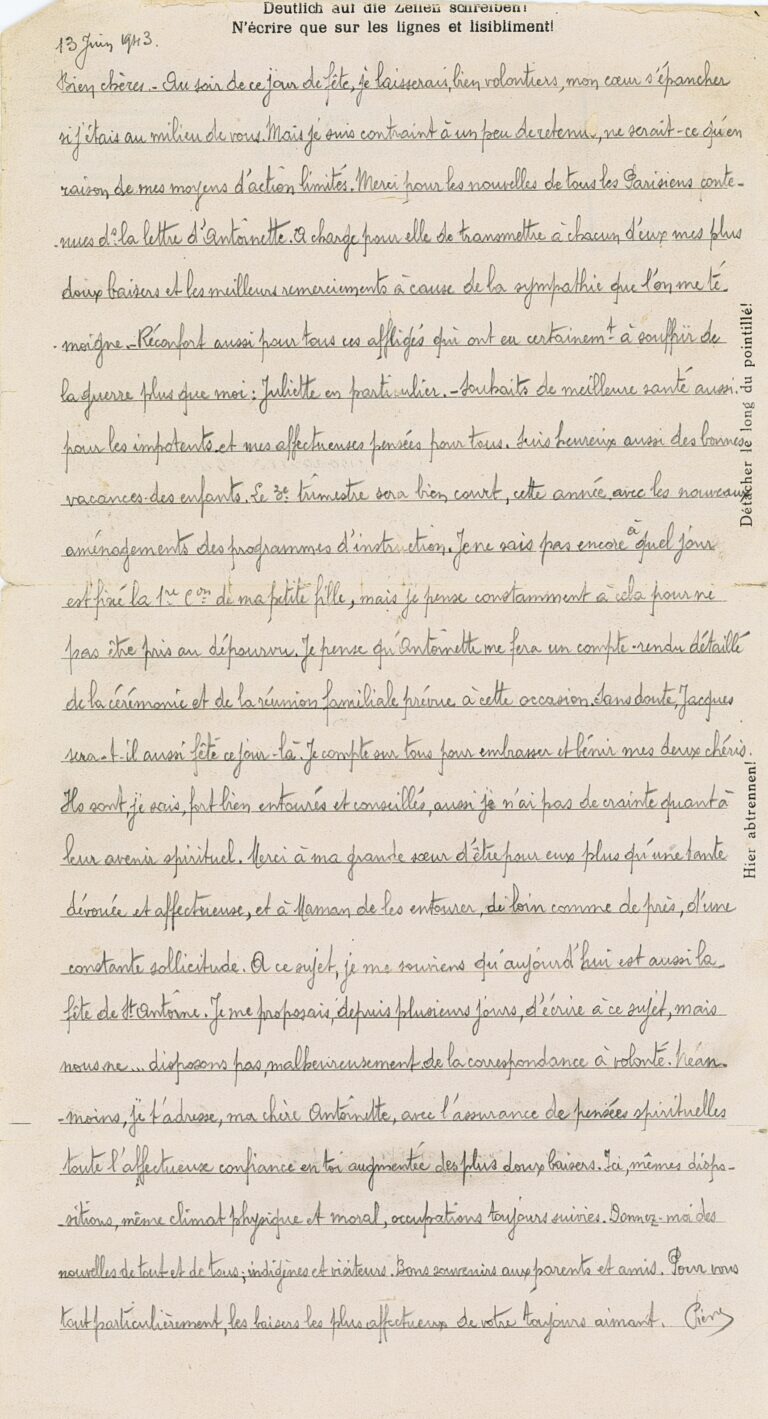 Deutlich auf die Zeilen schreiben!
N'écrire que sur les lignes et lisiblement!
13 Juin 1943.
Bien chères. - Au soir de ce jour de fête, je laisserais, bien volontiers, mon cœur s'épancher
si j'étais au milieu de vous. Mais je suis contraint à un peu de retenu., ne serait-ce qu'en
raison de mes moyens d'action limités. Merci pour les nouvelles de tous les Parisiens conte-
-nues ds la lettre d'Antoinette. A charge pour elle de transmettre à chacun d'eux mes plus
doux baisers et les meilleurs remerciements à cause de la sympathie que l'on me té-
-moigne. - Réconfort aussi pour tous ces affligés qui ont eu certainemt à souffrir de
la guerre plus que moi : Juliette en particulier. - Souhaits de meilleure santé aussi
pour les impotents et mes affectueuses pensées pour tous. Suis heureux aussi des bonnes
vacances des enfants. Le 3e trimestre sera bien court, cette année, avec les nouveaux
aménagements des programmes d'instruction. Je ne sais pas encore à quel jour
est fixé la 1re Con de ma petite fille, mais je pense constamment à cela pour ne
pas être pris au dépourvu. Je pense qu'Antoinette me fera un compte-rendu détaillé
de la cérémonie et de la réunion familiale prévue à cette occasion. Sans doute, Jacques
sera-t-il aussi fêté ce jour-là. Je compte sur tous pour embrasser et bénir mes deux chéris.
Ils sont, je sais, fort bien entourés et conseillés, aussi je n'ai pas de crainte quant à
leur avenir spirituel. Merci à ma grande sœur d'être pour eux plus qu'une tante
dévouée et affectueuse, et à Maman de les entourer, de loin comme de près, d'une
constante sollicitude. A ce sujet, je me souviens qu'aujourd'hui est aussi la
fête de St Antoine. Je me proposais, depuis plusieurs jours, d'écrire à ce sujet, mais
nous ne ... disposons pas, malheureusement de la correspondance à volonté. Néan-
-moins, je t'adresse, ma chère Antoinette, avec l'assurance de pensées spirituelles
toute l'affectueuse confiance en toi augmentée des plus doux baisers. Ici, mêmes dispo-
-sitions, même climat physique et moral, occupations toujours suivies. Donnez-moi des
nouvelles de tout et de tous ; indigènes et visiteurs. Bons souvenirs aux parents et amis. Pour vous
tout particulièrement, les baisers les plus affectueux de votre toujours aimant. Pierre
Détacher le long du pointillé!
Hier abtrennen!